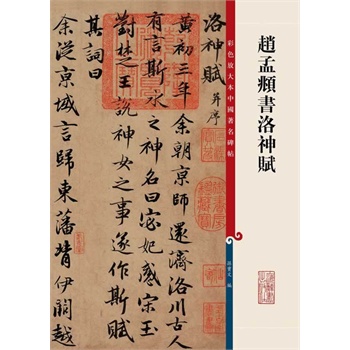 趙孟頫書洛神賦
彩色放大本中國著名碑帖
孫寶文 編
洛神賦 并序
黃初三年余朝京師還濟洛川古人
有言斯水之神名曰宓妃感宋玉
對楚王說神女之事遂作斯賦
其詞曰
余從京域言歸東藩背伊闕越